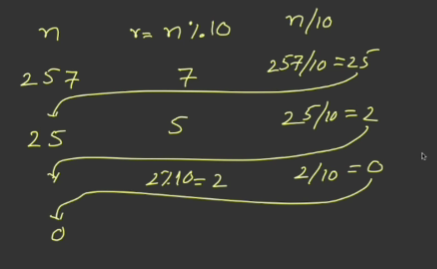 n r = n%10 n/10
257 7 257/10 = 25
25 5 25/10 = 2
2%10 = 2 2/10 = 0
0